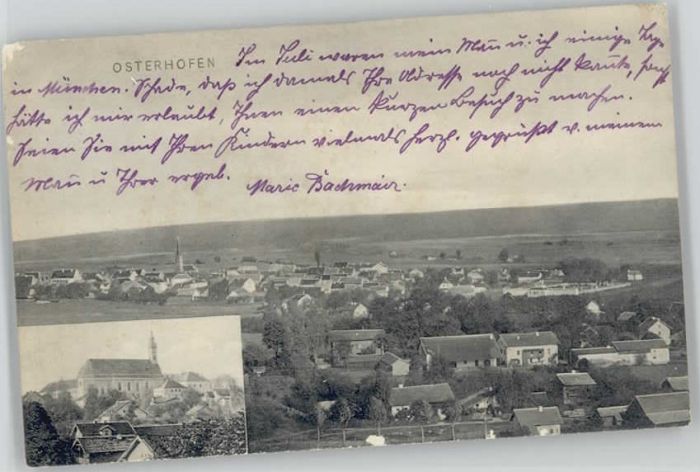 OSTERHOFEN
Im Juli waren mein Mañ u. ich einige Tage
in München. Schade, daß ich damals Ihre Adresse noch nicht kañte, sonst
hätte ich mir erlaubt, Ihnen einen kurzen Besuch zu machen.
Seien Sie mit Ihren Kindern vielmals herzl. gegrüßt v. meinem
Mañ u Ihrer ergeb. Marie Bachmair.